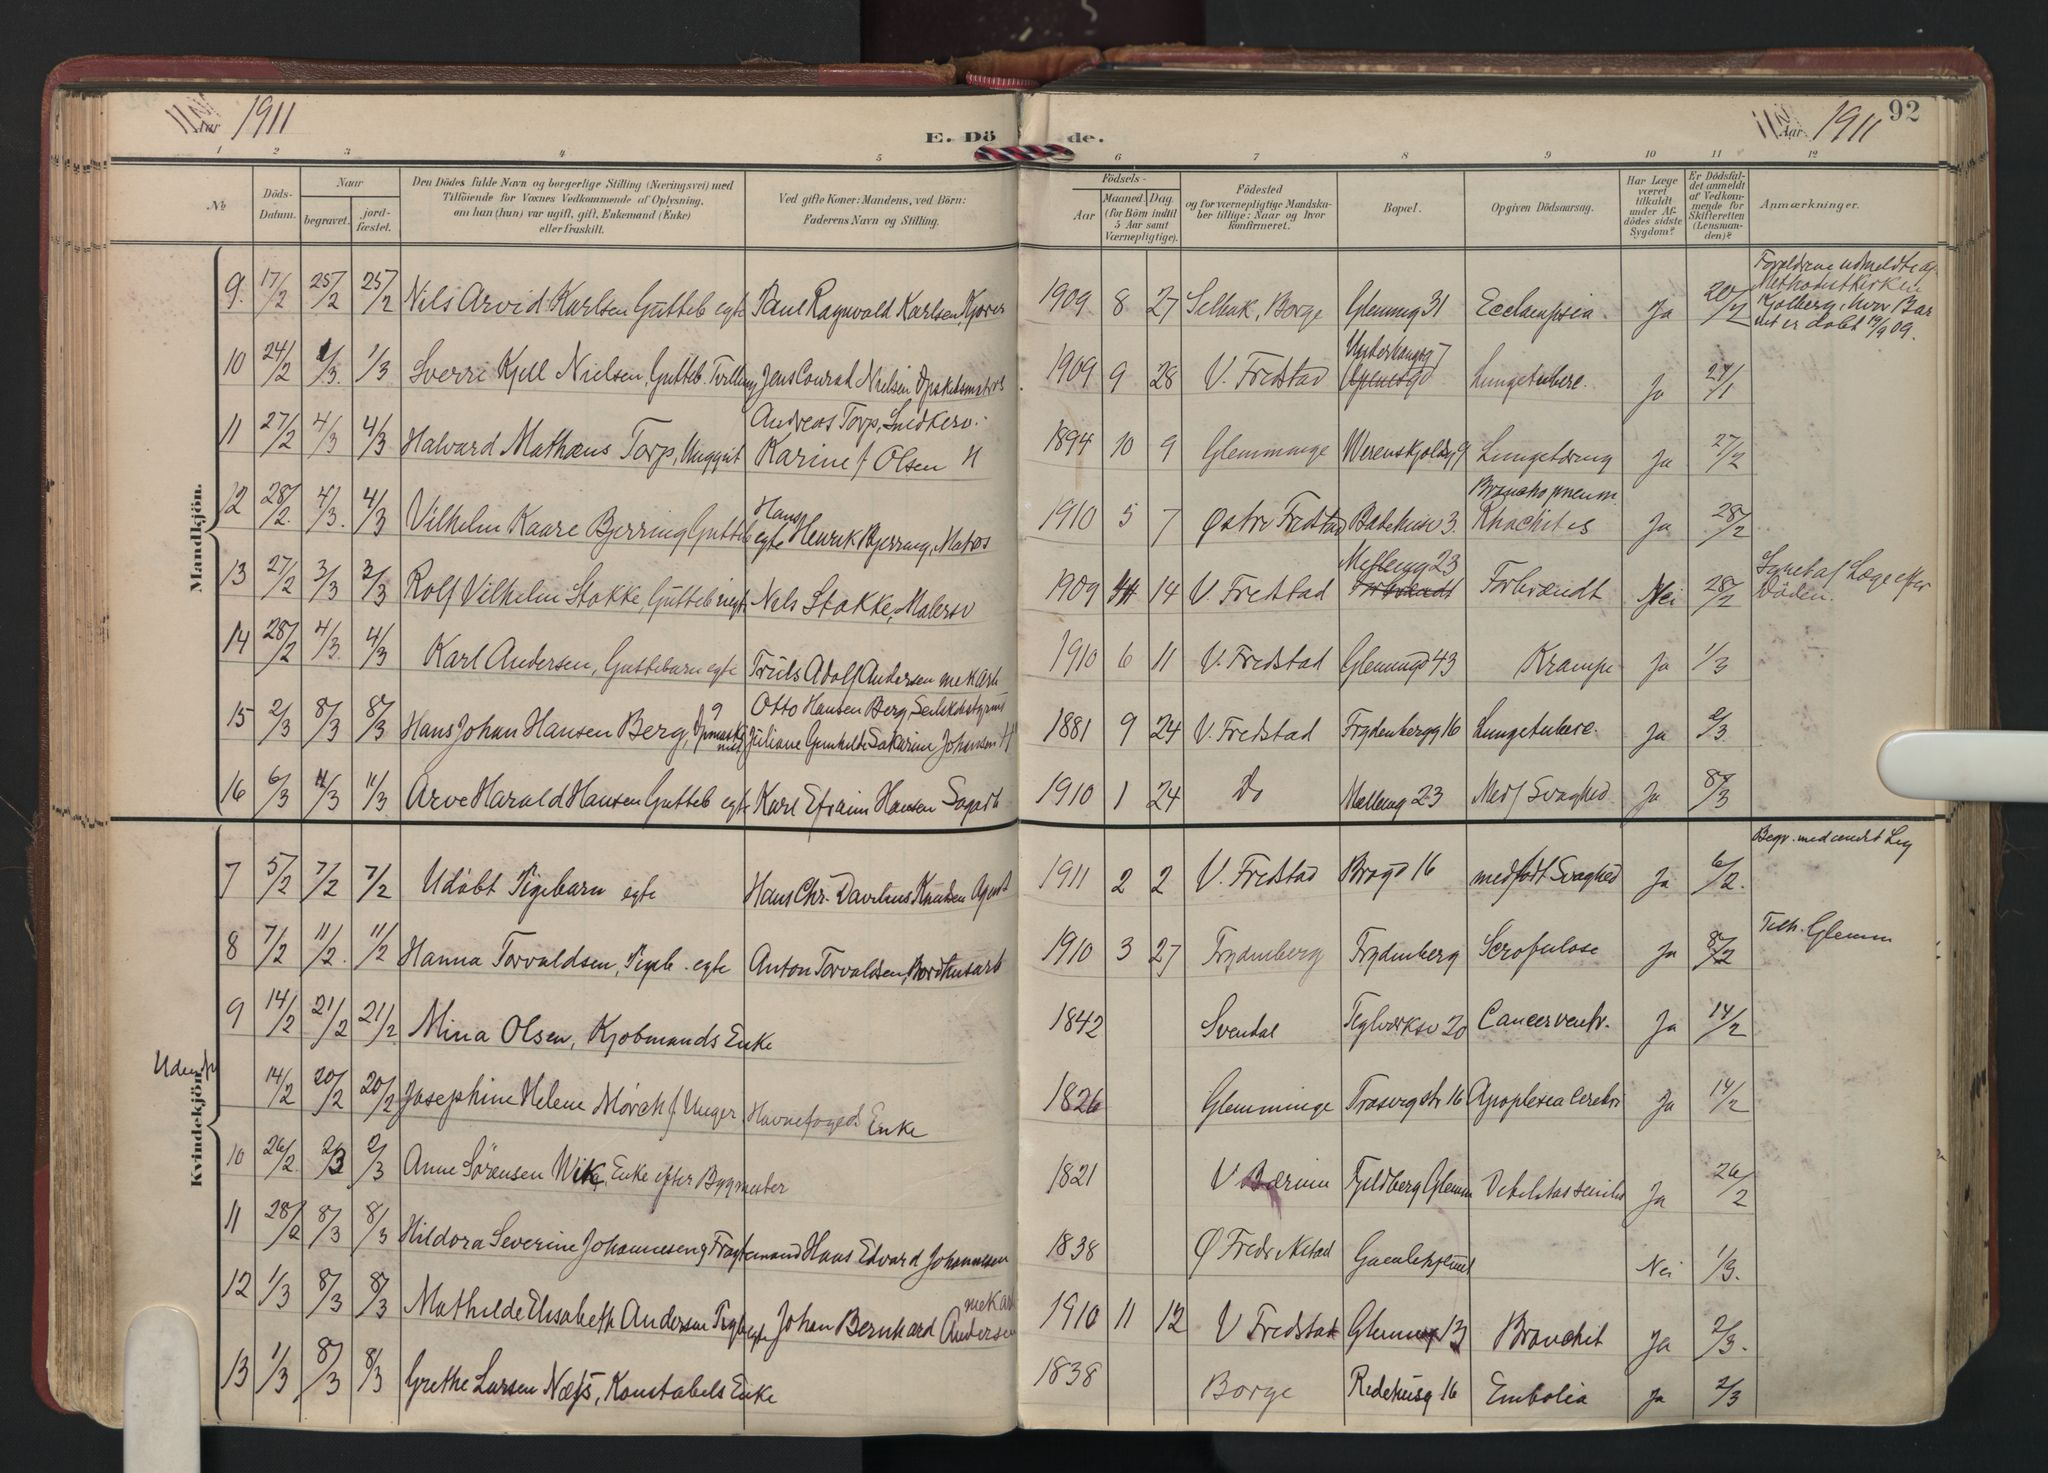 Aar 1911
E. Dö de.
Aar 1911
92
1 2 3 4 5 6 7 8 9 10 11 12
No
Döds-Datum.
Naar
begravet.
jord-fæstet.
Den Dödes fulde Navn og borgerlige Stilling (Næringsvei) med
Tilföiende for Voxnes Vedkommende af Oplysning,
om han (hun) var ugift, gift, Enkemand (Enke)
eller fraskilt.
Ved gifte Koner: Mandens, ved Börn:
Faderens Navn og Stilling.
Födsels-
Aar
Maaned. Dag.
(for Börn indtil
5 Aar samt
Værnepligtige).
Födested
og for værnepligtige Mandska-
ber tillige: Naar og hvor
konfirmeret.
Bopæl.
Opgiven Dödsaarsag.
Har Læge
været
tilkaldt
under Af-
dödes sidste
Sygdom?
Er Dödsfal-
det anmeldt
af Vedkom-
mende for
Skifteretten
(Lensman-
den)?
Anmærkninger.
Mandkjön.
9. 17/2 25/2 25/2 Nils Arvid Karlsen Gutteb egte Paul Ragnvald Karlsen, Kjører 1909 8 27 Selbak, Borge Glemmg 31 Ecclampsia. Ja 20/2 Forældrene udmeldte af Methodistkirken hvor Bar net er døbt 19/9 09.
10 24/2 1/3. 1/3 Sverre Kjell Nielsen, Gutteb. Tvilling Jens Conrad Nielsen 1909 9 28 V. Fredstad Lungetuberc. Ja 27/1
11 27/2 4/3 4/3 Halvard Mathæus Torp, Unggut Andreas Torp, Snedkersv. Karine f Olsen H 1894 10 9 Glemminge Werenskjoldg 9 Lungetæring Ja 27/2
12 28/2. 4/3. 4/3 Vilhelm Kaare Bjerring Gutteb egte Hans Henrik Bjerring, Matros 1910 5 7 Østre Fredstad Badehusg 3. Bronchopneum. Rhachites Ja 28/2
13 27/2 3/3 3/3 Rolf Vilhelm Stokke, Gutteb uegte Nils Stokke, Malersv 1909 14 V. Fredstad Mellemg 23 Forbrændt Nei 28/2 Synet af Læge efter Døden.
14 28/2 4/3. 4/3 Karl Andersen, Guttebarn egte Truls Adolf Andersen mek Arb 1910 6 11 V. Fredstad Glemmg 43 Krampe Ja 1/3
15 2/3 8/3 8/3 Hans Johan Hansen Berg, g Otto Hansen Berg Juliane Gunhilde Sakarine Johansen H 1881 9 24 V. Fredstad Frydenbergg 16 Lungetuberc. Ja 2/3
16 6/3 11/3 11/3 Arve Harald Hansen Gutteb egte Karl Efraim Hansen Sagarb 1910 1 24 Do Mellemg 23 Medf Svaghed Ja 8/3
Kvindekjön.
7 5/2 7/2 7/2 Udøbt Pigebarn egte Hans Chr. Davilius Knudsen Agent 1911 2 2 V. Fredstad Brogd 16 medfødt Svaghed Ja 6/2. Begr. med andet Lig
8 7/2 11/2. 11/2 Hanna Torvaldsen, Pigeb. egte Anton Torvaldsen, Bordtomtarb 1910 3 27 Frydenberg Frydenberg Scrofulose Ja 8/2 Tilh. Glemm
9 14/2 21/2 21/2. Mina Olsen, Kjøbmands Enke 1842 Svendal Teglverksv 20 Cancer ventr. Ja 14/2
14/2 20/2 20/2 Josephine Helene Mørch f Unger, Havnefogeds Enke 1826 Glemminge Trosvigstr 16 Apoplexia Cerebri Ja 14/2
10 26/2. 2/3 2/3 Anne Sørensen Wik, Enke efter Bygmester 1821 V Bærum Fjeldberg Glemm Debilitas senilis Ja 26/2
11 28/2 8/3 8/3 Hildora Severine Johannesen g Fragtemand Hans Edvard Johannesen 1838 Ø Fredrikstad Nei 1/3.
12 1/3 8/3 8/3 Mathilde Elisabeth Andersen Pigb egte Johan Bernhard Andersen mek Arb 1910 11 12 V Fredstad Glemmg 13 Bronchit Ja 2/3.
13 1/3 8/3 8/3 Grethe Larsen Næss, Konstabels Enke 1838 Borge Ridehusg 16 Embolia Ja 2/3